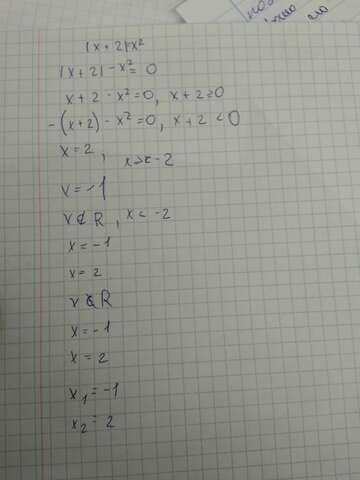 |x+2|=x²
|x+2|-x²=0
x+2-x²=0, x+2≥0
-(x+2)-x²=0, x+2<0
x=2, x≥-2
x=-1
x∉R, x<-2
x=-1
x=2
x∉R
x=-1
x=2
x₁=-1
x₂=2